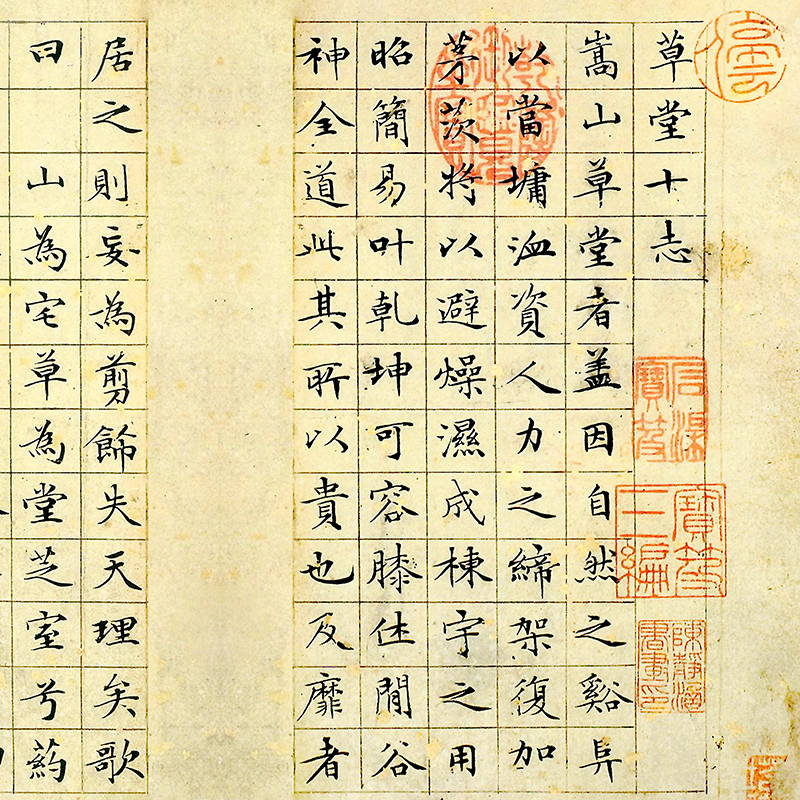 草堂十志
嵩山草堂者盖因自然之谿阜
以當墉洫資人力之締架復加
茅茨将以避燥濕成棟宇之用
昭簡易叶乾坤可容膝休閒谷
神全道此其所以貴也及靡者
居之則妄為剪飾失天理矣歌
曰 山為宅草為堂芝室兮葯
石渠寶笈
寶笈三編